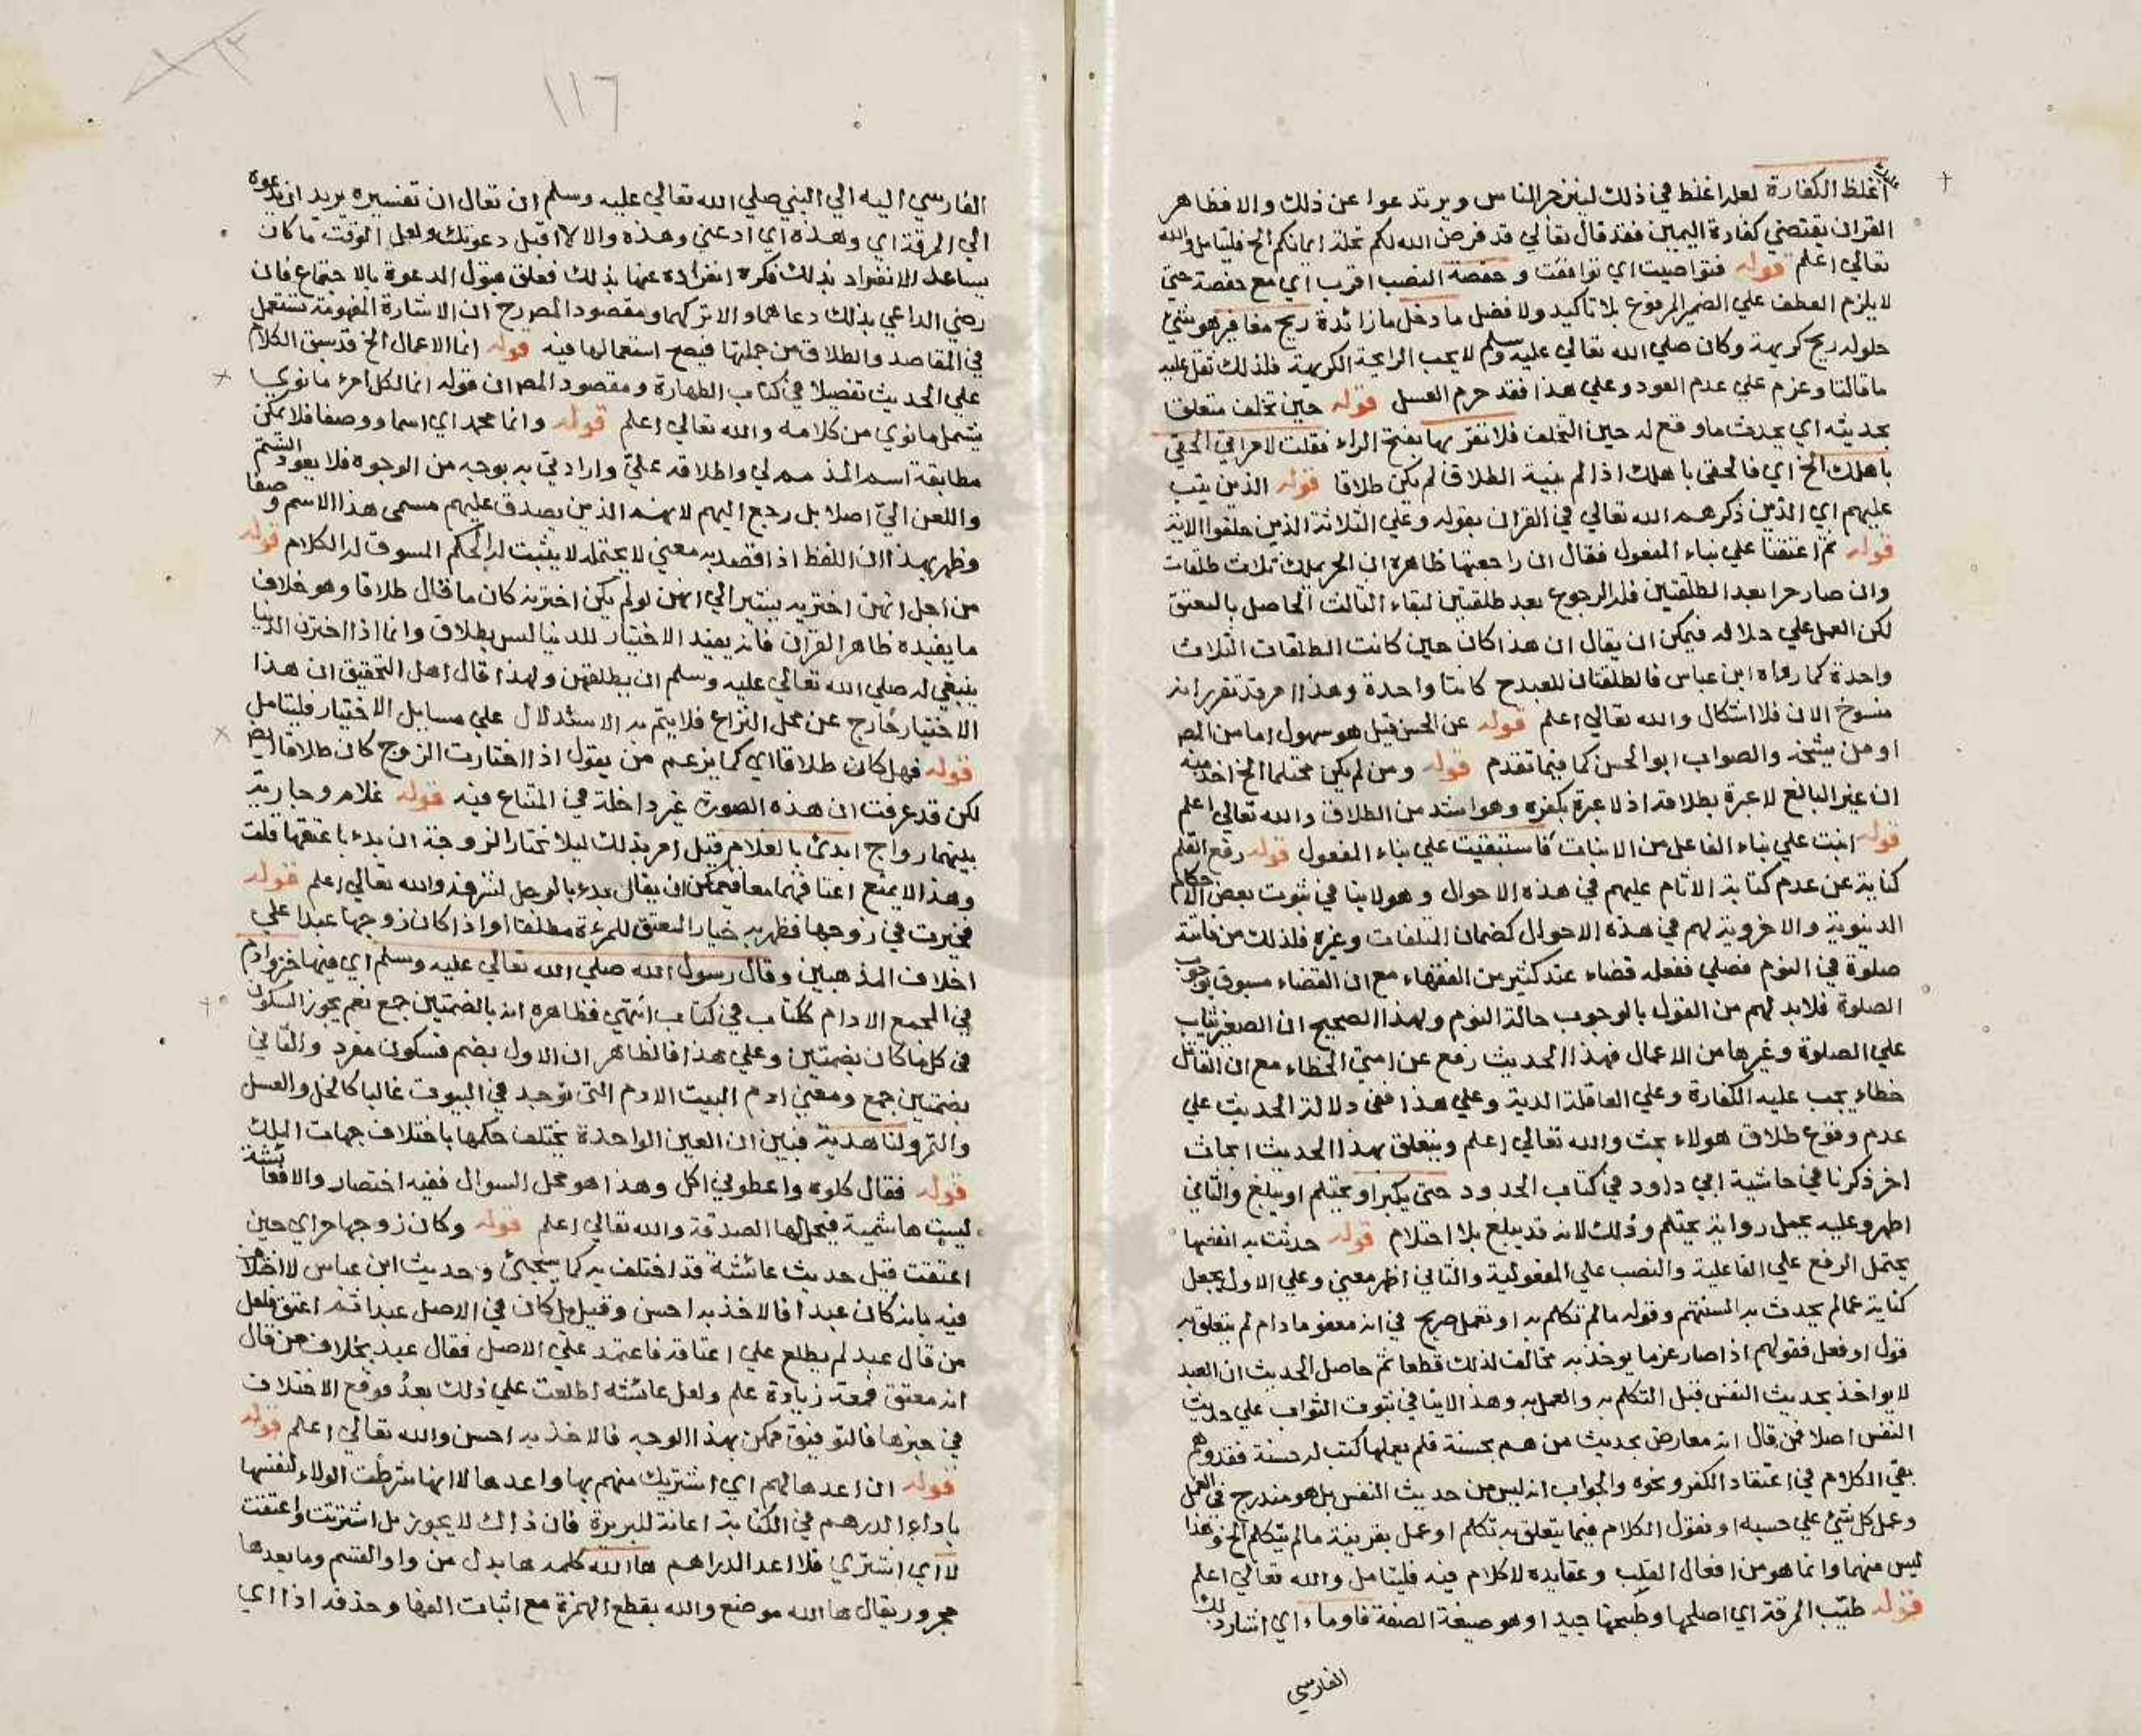 أغلظ الكفارة لعله اغلظ في ذلك لينزجر الناس ويرتدعوا عن ذلك والا فظاهر
القران يقتضي كفارة اليمين فقد قال تعالي قد فرض الله لكم تحلة ايمانكم الخ فليتامل والله
تعالي اعلم قوله فتواصيت اي توافقت و حفصة النصب اقرب اي مع حفصة حتي
لا يلزم العطف علي الضمير المرفوع بلا تاكيد ولا فصل ما دخل ما زائدة ريح مغافير هو شئ
حلو له ريح كريهة وكان صلي الله تعالي عليه وسلم لا يحب الرائحة الكريهة فلذلك ثقل عليه
ما قالتا وعزم علي عدم العود وعلي هذا فقد حرم العسل قوله حين تخلف متعلق
بحديثه اي يحدث ما وقع له حين التخلف فلا تقربها بفتح الراء فقلت لامراتي الحقي
باهلك الخ اي فالحقي باهلك اذا لم ينو به الطلاق لم يكن طلاقا قوله الذين تيب
عليهم اي الذين ذكرهم الله تعالي في القران بقوله وعلي الثلاثة الذين خلفوا الاية
قوله ثم اعتقنا علي بناء المفعول فقال ان راجعتها ظاهره ان الحر يملك ثلاث طلقات
وان صار حرا بعد الطلقتين فله الرجوع بعد طلقتين لبقاء الثالث الحاصل بالعتق
لكن العمل علي خلافه فيمكن ان يقال ان هذا كان حين كانت الطلقات الثلاث
واحدة كما رواه ابن عباس فالطلقتان للعبد ح كانتا واحدة وهذا امر قد تقرر انه
منسوخ الان فلا اشكال والله تعالي اعلم قوله عن الحسن قيل هو سهو له اما من المص
او من شيخه والصواب ابو الحسن كما فيما تقدم قوله ومن لم يكن محتلما الخ اخذ منه
ان غير البالغ لا عبرة بطلاقه اذ لا عبرة بكفره وهو اشد من الطلاق والله تعالي اعلم
قوله انبت علي بناء الفاعل من الانبات فاستبقيت علي بناء المفعول قوله رفع القلم
كناية عن عدم كتابة الاثام عليهم في هذه الاحوال وهو لا ينافي ثبوت بعض الاحكام
الدنيوية والاخروية لهم في هذه الاحوال كضمان المتلفات وغيره فلذلك من فاتته
صلوة في النوم فصلي ففعله قضاء عند كثير من الفقهاء مع ان القضاء مسبوق بوجوب
الصلوة فلا بد لهم من القول بالوجوب حالة النوم ولهذا الصحيح ان الصغير يثاب
علي الصلوة وغيرها من الاعمال فهذا الحديث رفع عن امتي الخطاء مع ان القاتل
خطاء يجب عليه الكفارة وعلي العاقلة الدية وعلي هذا ففي دلالة الحديث علي
عدم وقوع طلاق هولاء بحث والله تعالي اعلم ويتعلق بهذا الحديث ابحاث
اخر ذكرنا في حاشية ابي داود في كتاب الحدود حتي يكبر او يحتلم او يبلغ والثاني
اظهر وعليه يحمل رواية يحتلم وذلك لانه قد يبلغ بلا احتلام قوله حدثت به انفسها
يحتمل الرفع علي الفاعلية والنصب علي المفعولية والثاني اظهر معني وعلي الاول يجعل
كناية عما لم يحدث به السنتهم وقوله ما لم تكلم به او تعمل صريح في انه معفو ما دام لم يتعلق به
قول او فعل فقولهم اذا صار عزما يوخذ به مخالف لذلك قطعا ثم حاصل الحديث ان العبد
لا يواخذ بحديث النفس قبل التكلم به والعمل به وهذا لا ينافي ثبوت الثواب علي حديث
النفس اصلا فمن قال انه معارض بحديث من هم بحسنة فلم يعملها كتب له حسنة فقد وهم
بقي الكلام في اعتقاد الكفر ونحوه والجواب انه ليس من حديث النفس بل هو مندرج في العمل
وعمل كل شئ علي حسبه او نقول الكلام فيما يتعلق به تكلم او عمل بقرينة ما لم يتكلم الخ وهذا
ليس منهما وانما هو من افعال القلب وعقايده لا كلام فيه فليتامل والله تعالي اعلم
قوله طيب المرقة اي اصلحها وطبخها جيدا وهو صيغة الصفة فاوما اي اشار ذلك
الفارسي
١١٦
الفارسي اليه الي النبي صلي الله تعالي عليه وسلم ان تعال ان تفسيره يريد ان يدعوه
الي المرقة اي وهذه اي ادعني وهذه والا لا اقبل دعوتك ولعل الوقت ما كان
يساعد الانفراد بذلك فكره انفراده عنها بذلك فعلق قبول الدعوة بالاجتماع فان
رضي الداعي بذلك دعاهما والا تركهما ومقصود المص رح ان الاشارة المفهومة تستعمل
في المقاصد والطلاق من جملتها فيصح استعمالها فيه قوله انما الاعمال الخ قد سبق الكلام
علي الحديث تفصيلا في كتاب الطهارة ومقصود المص ان قوله انما لكل امرئ ما نوي
يشمل ما نوي من كلامه والله تعالي اعلم قوله وانا محمد اي اسما ووصفا فلا يمكن
مطابقة اسم المذمم لي واطلاقه علي وارادتي به بوجه من الوجوه فلا يعود الشتم
واللعن الي اصلا بل رجع اليهم لانهم الذين يصدق عليهم مسمي هذا الاسم وصفا
وظهر بهذا ان اللفظ اذا قصد به معني لا يحتمله لا يثبت له الحكم المسوق له الكلام قوله
من اجل انهن اخترنه يشير الي انهن لو لم يكن اخترنه كان ما قال طلاقا وهو خلاف
ما يفيده ظاهر القران فانه يفيد الاختيار للدنيا ليس بطلاق وانما اذا اخترن الدنيا
ينبغي له صلي الله تعالي عليه وسلم ان يطلقهن ولهذا قال اهل التحقيق ان هذا
الاختيار خارج عن محل النزاع فلا يتم به الاستدلال علي مسايل الاختيار فليتامل
قوله فهل كان طلاقا اي كما يزعم من يقول اذا اختارت الزوج كان طلاقا ايض
لكن قد عرفت ان هذه الصورة غير داخلة في المتنازع فيه قوله غلام وجارية
بينهما زواج ابدئ بالغلام قيل امر بذلك ليلا تختار الزوجة ان بدء باعتقها قلت
وهذا لا يمنع اعتاقهما معا فيمكن ان يقال بدء بالرجل لشرفه والله تعالي اعلم قوله
فخيرت في زوجها فظهر به خيار العتق للمرءة مطلقا او اذا كان زوجها عبدا علي
اختلاف المذهبين وقال رسول الله صلي الله تعالي عليه وسلم اي فيها خبز وادم
في المجمع الادام ككتاب في كتاب انتهي فظاهره انه بالضمتين جمع نعم يجوز السكون
في كل ما كان بضمتين وعلي هذا فالظاهر ان الاول بضم فسكون مفرد والثاني
بضمتين جمع ومعني ادم البيت الادم التي توجد في البيوت غالبا كالخل والعسل
والتمر ولنا هدية فبين ان العين الواحدة يختلف حكمها باختلاف جهات الملك
قوله فقال كلوه واعطوني اكل وهذا هو محل السوال ففيه اختصار والا فعائشة
ليست هاشمية فيحل لها الصدقة والله تعالي اعلم قوله وكان زوجها حر اي حين
اعتقت قيل حديث عائشة قد اختلف به كما سيجئ وحديث ابن عباس لا اختلاف
فيه بانه كان عبدا فالاخذ به احسن وقيل بل كان في الاصل عبدا ثم اعتق فلعل
من قال عبد لم يطلع علي اعتاقه فاعتمد علي الاصل فقال عبد بخلاف من قال
انه معتق فمعه زيادة علم ولعل عائشة اطلعت علي ذلك بعد فوقع الاختلاف
في خبرها فالتوفيق ممكن بهذا الوجه فالاخذ به احسن والله تعالي اعلم قوله
قوله ان اعدها لهم اي اشتريك منهم بها واعدها لا انها شرطت الولاء لنفسها
باداء الدرهم في الكتابة اعانة للبريرة فان ذلك لا يجوز بل اشترت واعتقت
لا اي اشتري فلا اعد الدراهم ها الله كلمه ها بدل من واو القسم وما بعدها
مجرور يقال ها الله موضع والله بقطع الهمزة مع اثبات الفها وحذفه اذا اي